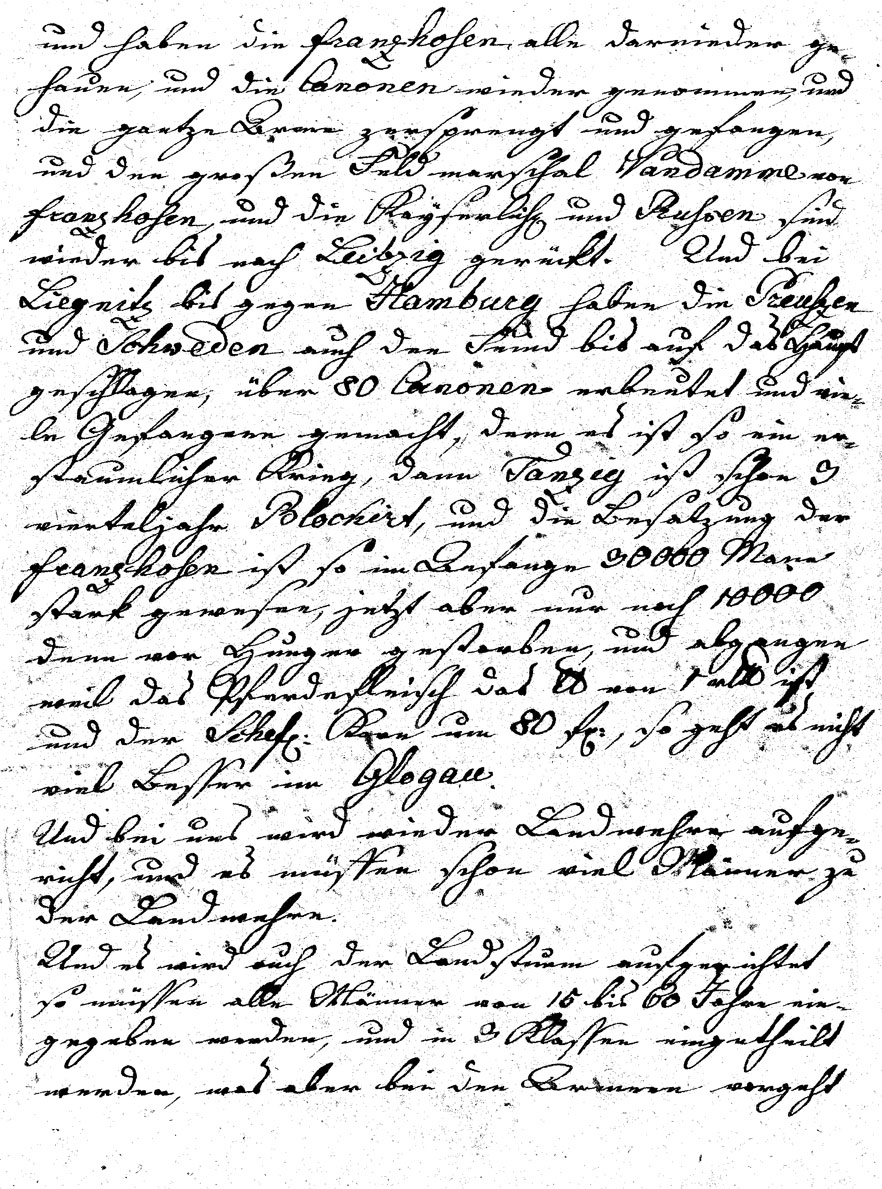 und haben die franzhosen, alle darnieder ge-
hauen, und die Canonen wieder genommen, und
die gantze Armee zersprengt und gefangen,
und den großen Feldmarschal Vandamme von
franzhosen, und die Kayserlich und Rußen sind
wieder bis nach Leibzig gerückt. Und bei
Liegnitz bis gegen Hamburg haben die Preußen
und Schweden auch den Feind bis auf das Haupt
geschlagen, über 80 Canonen erbeutet und vie-
le Gefangene gemacht, denn es ist so ein er-
staunlicher Krieg, dann Danzig ist schon 3
vierteljahr Blockirt, und die Besatzung der
franzhosen ist so im Anfange 30000 Mann
stark gewesen, jetzt aber nur noch 10000
denn vor Hunger gestorben, und abgangen
weil das Pferdefleisch das ℔ von 1 rtl ist
und der Schef: Korn um 80 fx:, so geht es nicht
viel Besser in Glogau.
Und bei uns wird wieder Landwehre aufge-
richt, und es müssen schon viel Männer zu
der Landwehre.
Und es wird auch der Landsturm aufgerichtet
so müssen alle Männer von 15 bis 60 Jahre ein-
gegeben werden, und in 3 Klassen eingetheilt
werden, was aber bei den Armeen vorgeht